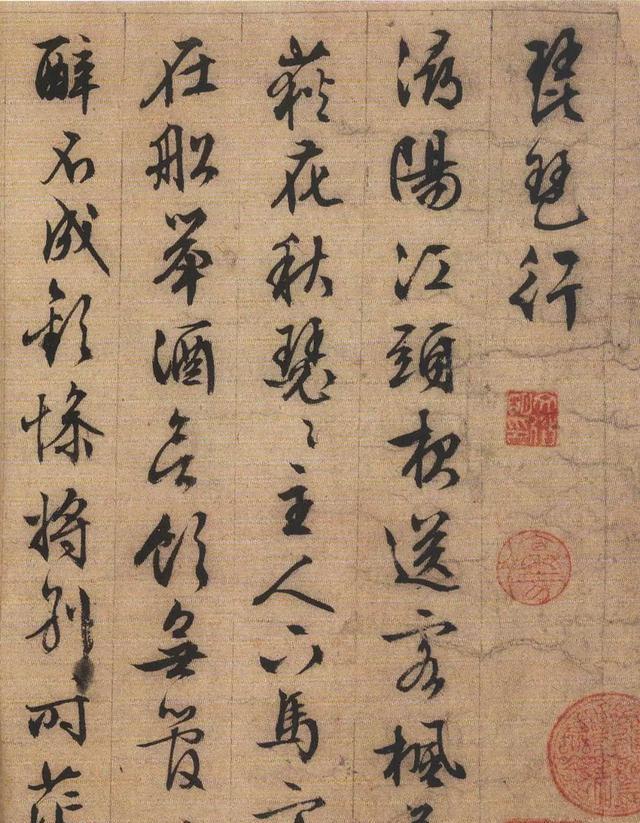 琵琶行
潯陽江頭夜送客楓
荻花秋瑟〻主人下馬客
在船舉酒欲飲無管
醉不成歡慘將別時茫